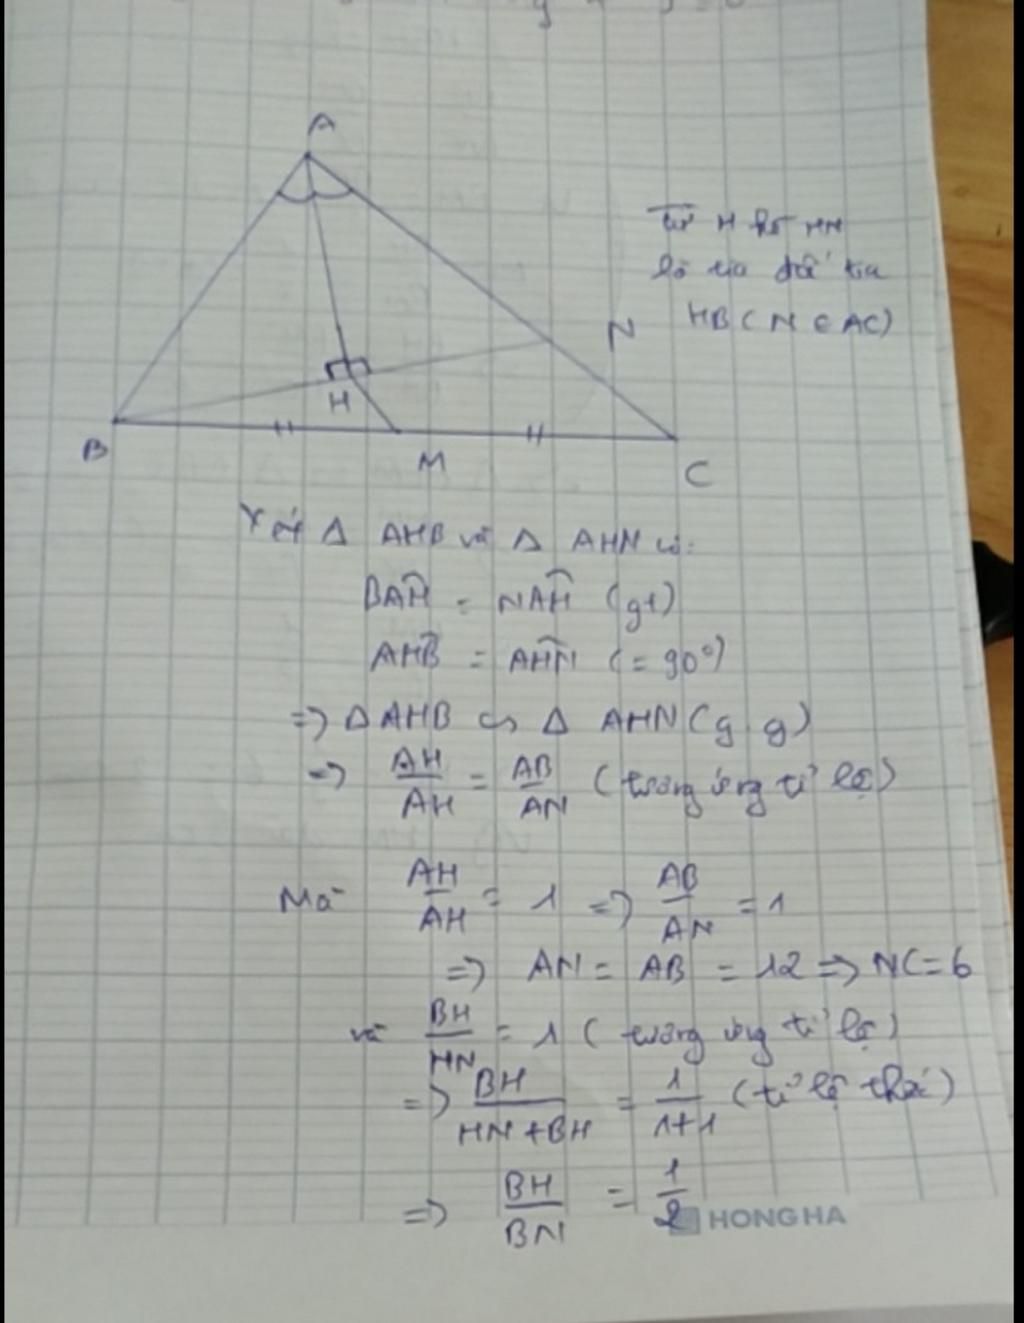 A
Từ H kẻ HN
là tia đối tia
HB (N ∈ AC)
N
H
B
M
C
Xét Δ AHB và Δ AHN có:
BAH = NAH (gt)
AHB = AHN (= 90°)
=> Δ AHB ∽ Δ AHN (g.g)
=> AH/AH = AB/AN (tương ứng tỉ lệ)
Mà AH/AH = 1 => AB/AN = 1
=> AN = AB = 12 => NC = 6
và BH/HN = 1 (tương ứng tỉ lệ)
=> BH/HN + BH = 1/1+1 (tỉ lệ thức)
=> BH/BN = 1/2
HONG HA